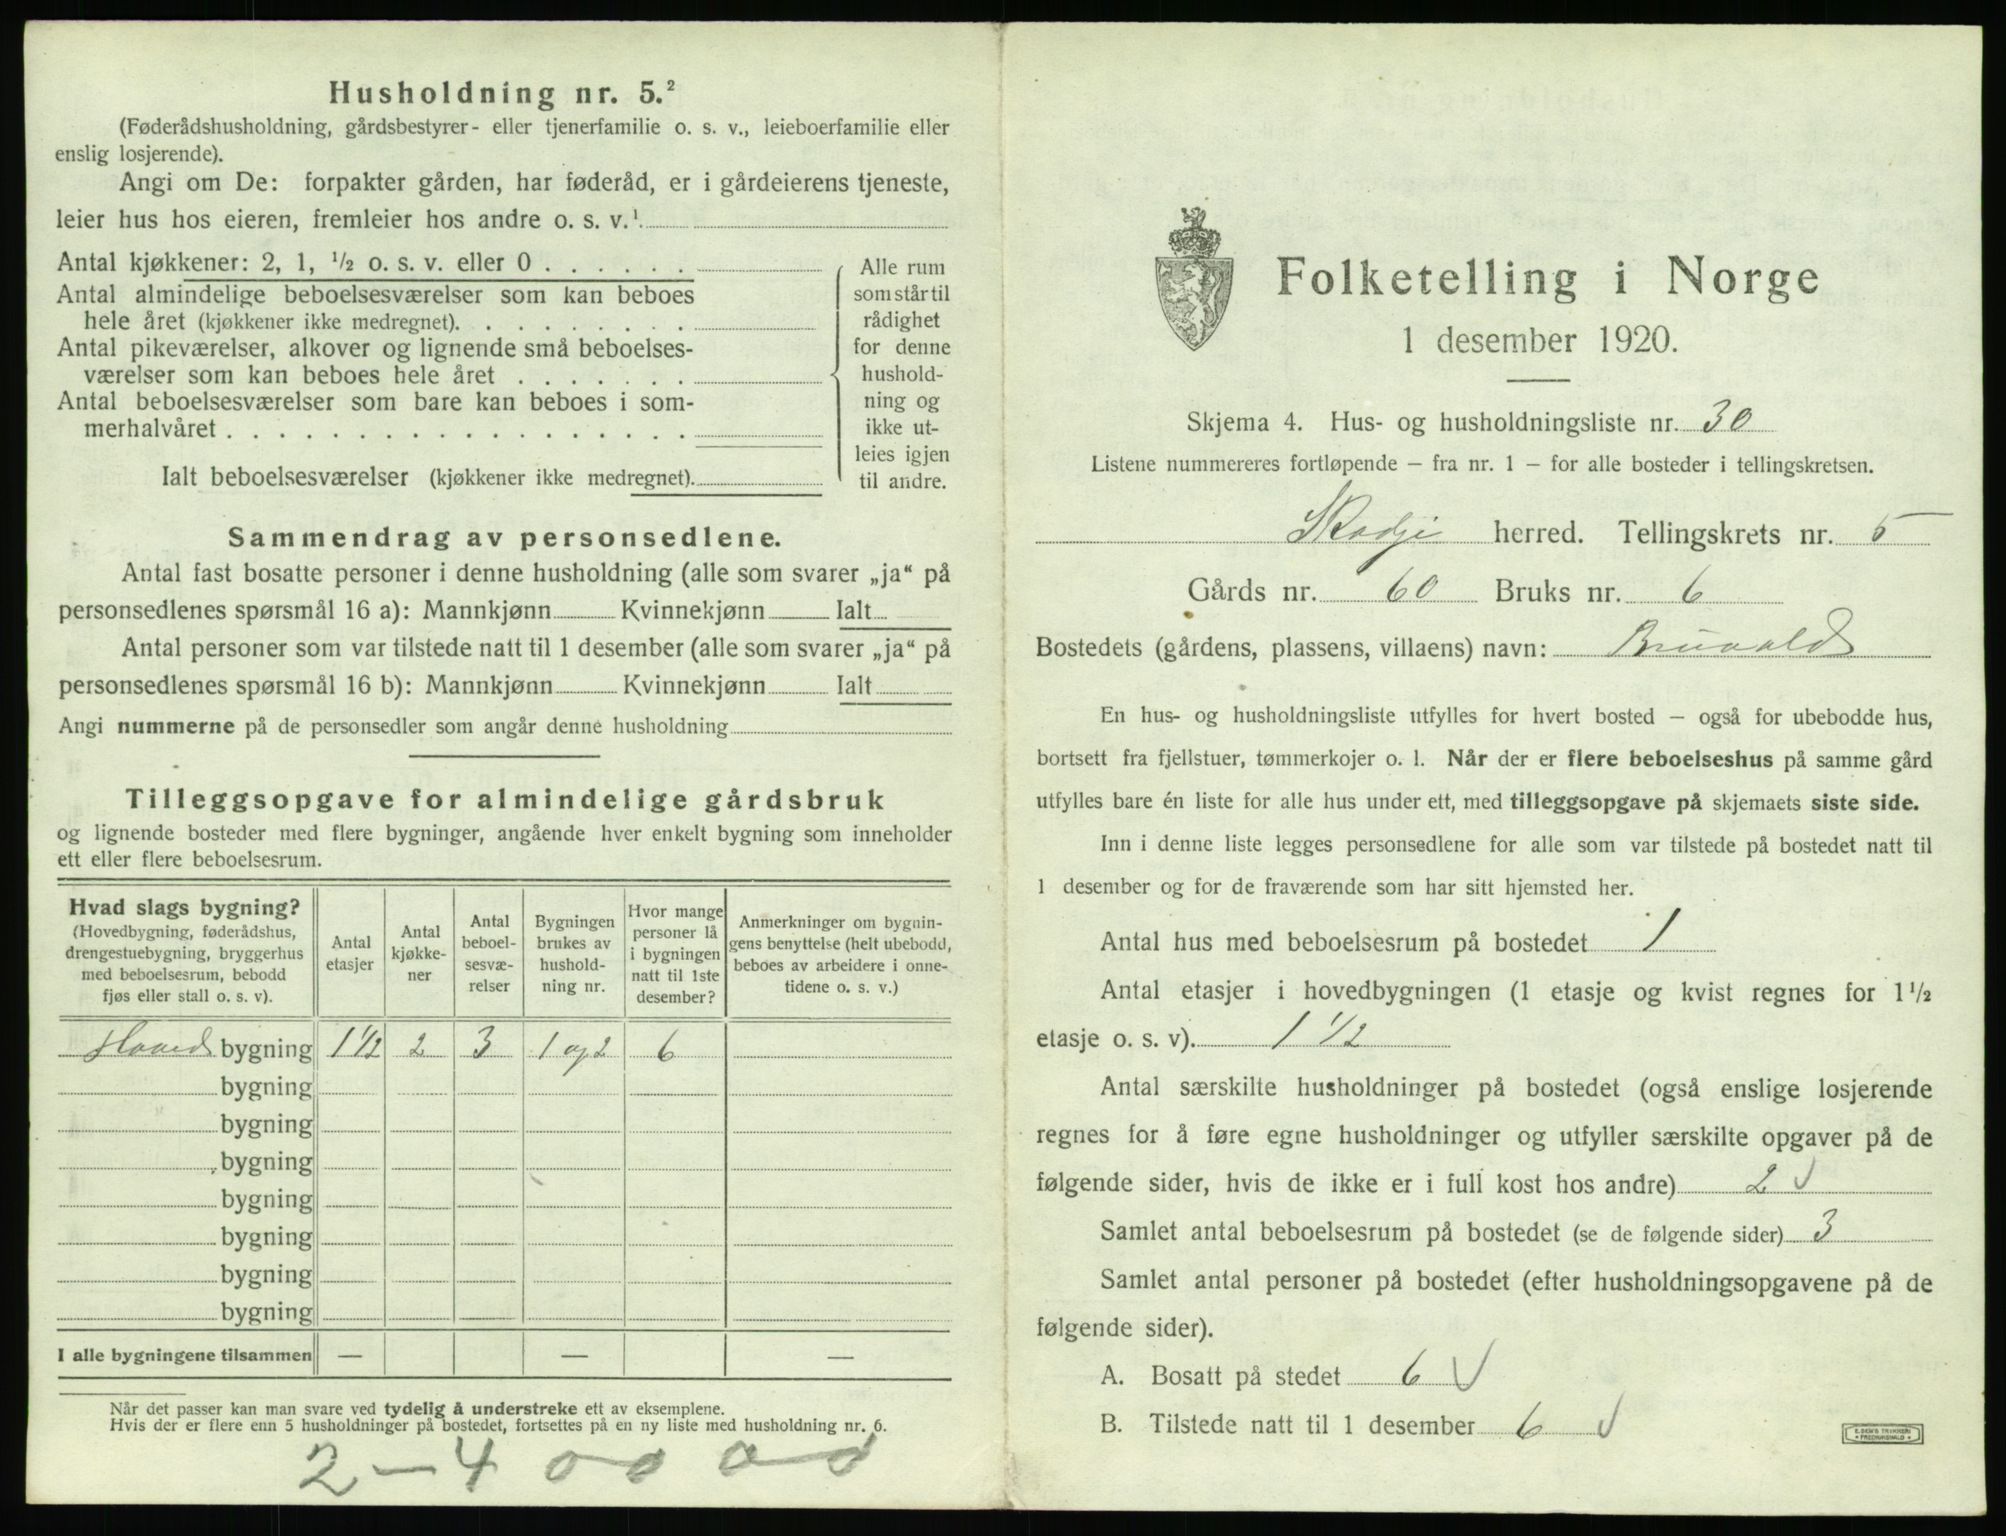 Husholdning nr. 5.²
(Føderådshusholdning, gårdsbestyrer- eller tjenerfamilie o. s. v., leieboerfamilie eller
enslig losjerende).
Angi om De: forpakter gården, har føderåd, er i gårdeierens tjeneste,
leier hus hos eieren, fremleier hos andre o. s. v.¹
Antal kjøkkener: 2, 1, ½ o. s. v. eller 0 . . . . . .
Antal almindelige beboelsesværelser som kan beboes
hele året (kjøkkener ikke medregnet). . . . . . . . .
Antal pikeværelser, alkover og lignende små beboelses-
værelser som kan beboes hele året . . . . . . .
Antal beboelsesværelser som bare kan beboes i som-
merhalvåret . . . . . . . . . . . . . . . . . .
Ialt beboelsesværelser (kjøkkener ikke medregnet).
Alle rum
som står til
rådighet
for denne
hushold-
ning og
ikke ut-
leies igjen
til andre.
Sammendrag av personsedlene.
Antal fast bosatte personer i denne husholdning (alle som svarer „ja“ på
personsedlenes spørsmål 16 a): Mannkjønn Kvinnekjønn Ialt
Antal personer som var tilstede natt til 1 desember (alle som svarer „ja“ på
personsedlenes spørsmål 16 b): Mannkjønn Kvinnekjønn Ialt
Angi nummerne på de personsedler som angår denne husholdning
Tilleggsopgave for almindelige gårdsbruk
og lignende bosteder med flere bygninger, angående hver enkelt bygning som inneholder
ett eller flere beboelsesrum.
Hvad slags bygning?
(Hovedbygning, føderådshus,
drengestuebygning, bryggerhus
med beboelsesrum, bebodd
fjøs eller stall o. s. v).
Antal
etasjer
Antal
kjøkke-
ner
Antal
beboel-
sesvæ-
relser
Bygningen
brukes av
hushold-
ning nr.
Hvor mange
personer lå
i bygningen
natt til 1ste
desember?
Anmerkninger om bygnin-
gens benyttelse (helt ubebodd,
beboes av arbeidere i onne-
tidene o. s. v.)
Hoved bygning 1 1/2 2 3 1 og 2 6
bygning
bygning
bygning
bygning
bygning
bygning
bygning
I alle bygningene tilsammen — — —
Når det passer kan man svare ved tydelig å understreke ett av eksemplene.
Hvis der er flere enn 5 husholdninger på bostedet, fortsettes på en ny liste med husholdning nr. 6.
2 – 4 0 0 0 0
Folketelling i Norge
1 desember 1920.
Skjema 4. Hus- og husholdningsliste nr. 30
Listene nummereres fortløpende – fra nr. 1 – for alle bosteder i tellingskretsen.
Skodje herred. Tellingskrets nr. 5
Gårds nr. 60 Bruks nr. 6
Bostedets (gårdens, plassens, villaens) navn:
En hus- og husholdningsliste utfylles for hvert bosted – også for ubebodde hus,
bortsett fra fjellstuer, tømmerkojer o. l. Når der er flere beboelseshus på samme gård
utfylles bare én liste for alle hus under ett, med tilleggsopgave på skjemaets siste side.
Inn i denne liste legges personsedlene for alle som var tilstede på bostedet natt til
1 desember og for de fraværende som har sitt hjemsted her.
Antal hus med beboelsesrum på bostedet 1
Antal etasjer i hovedbygningen (1 etasje og kvist regnes for 1½
etasje o. s. v). 1 1/2
Antal særskilte husholdninger på bostedet (også enslige losjerende
regnes for å føre egne husholdninger og utfyller særskilte opgaver på de
følgende sider, hvis de ikke er i full kost hos andre) 2
Samlet antal beboelsesrum på bostedet (se de følgende sider) 3
Samlet antal personer på bostedet (efter husholdningsopgavene på de
følgende sider).
A. Bosatt på stedet 6
B. Tilstede natt til 1 desember 6